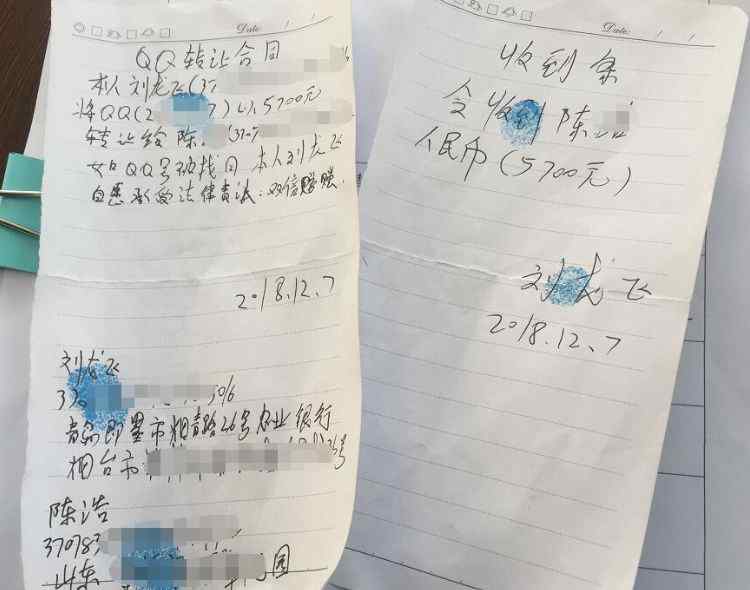 Date: / /
QQ转让合同
本人刘龙飞(37
将QQ(2 7)以5700元
转让给陈 (370
如QQ号被找回 本人刘龙飞
自愿承受法律责法.双倍赔赔.
2018.12.7
刘龙飞
370 306
青岛即墨市烟青路26号农业银行
烟台市 号
陈浩
370783
山东 园
Date: / /
收到条
今收到陈浩
人民币(5700元)
刘龙飞
2018.12.7